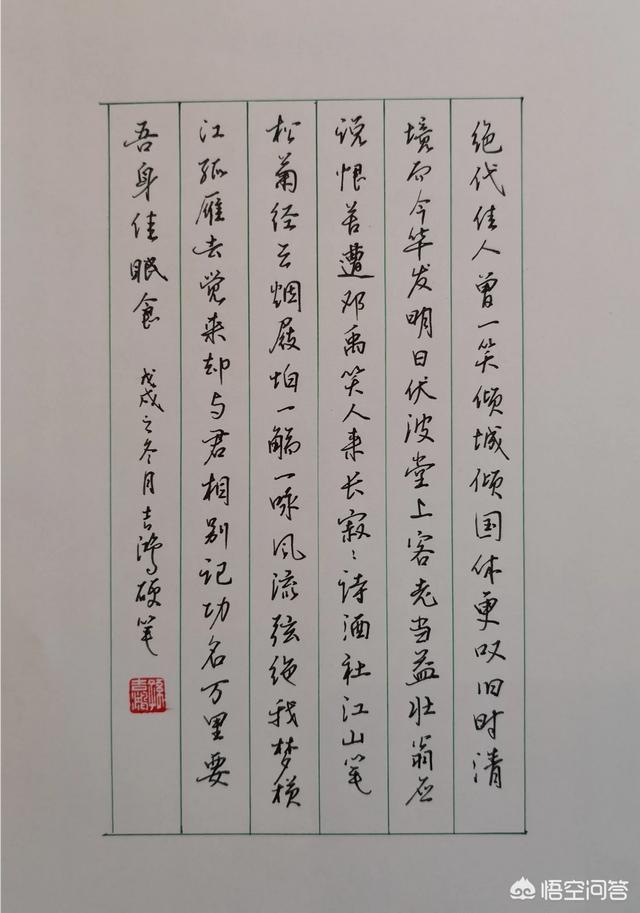 绝代佳人曾一笑倾城倾国休更叹旧时清
境而今华发明日伏波堂上客老当益壮翁应
说恨苦遭邓禹笑人来长寂〻诗酒社江山笔
松菊径云烟屐怕一觞一咏风流弦绝我梦横
江孤雁去觉来却与君相别记功名万里要
吾身佳眠食 戊戌之冬月吉鸿硬笔
悟空问答